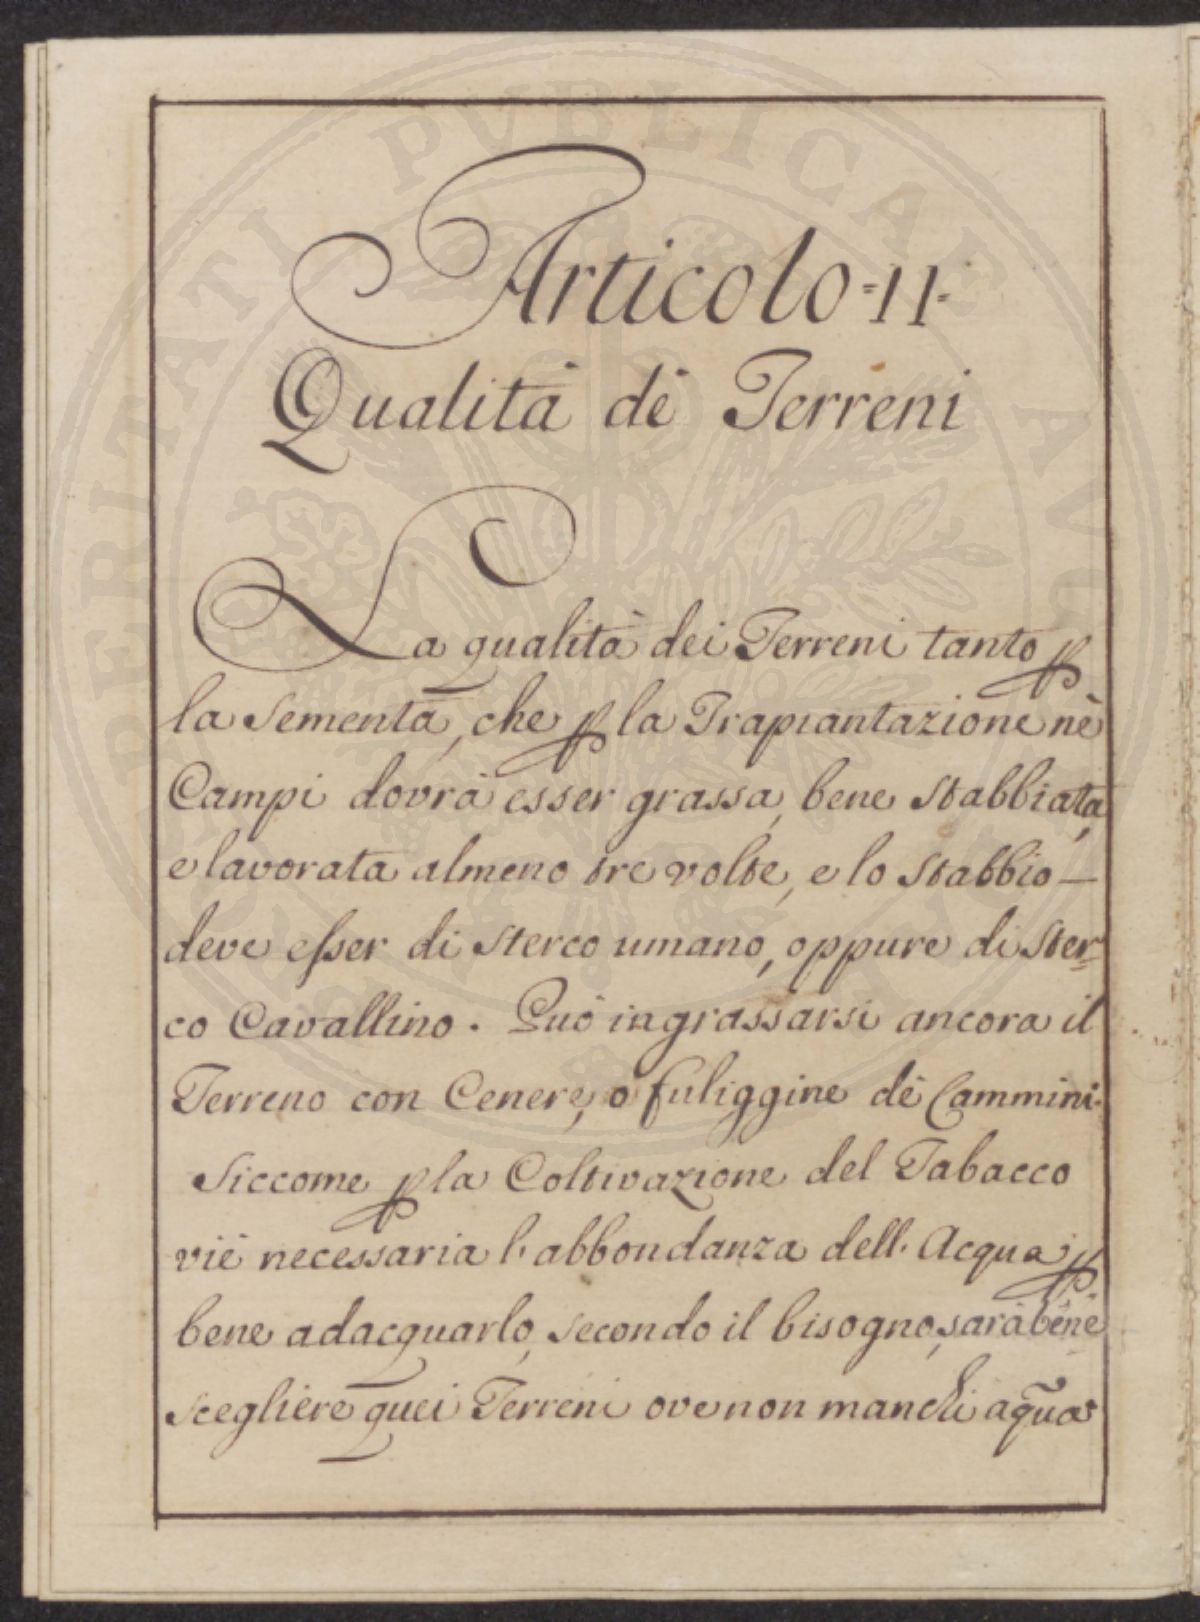 Articolo =II=
Qualità dè Terreni
La qualità dei Terreni tanto ꝑ
la Sementa, che ꝑ la Trapiantazione nè
Campi dovrà esser grassa, bene Stabbiata,
e lavorata almeno tre volte, e lo Stabbio —
deve esser di Sterco umano, oppure di Ster=
co Cavallino. Può ingrassarsi ancora il
Terreno con Cenere, o fuliggine dè Cammini.
Siccome ꝑ la Coltivazione del Tabacco
viè necessaria l' abbondanza dell' Acqua ꝑ
bene adacquarlo, secondo il bisogno, sarà bene
scegliere quei Terreni ove non manchi aq̃ua
VERITATI PVBLICAE